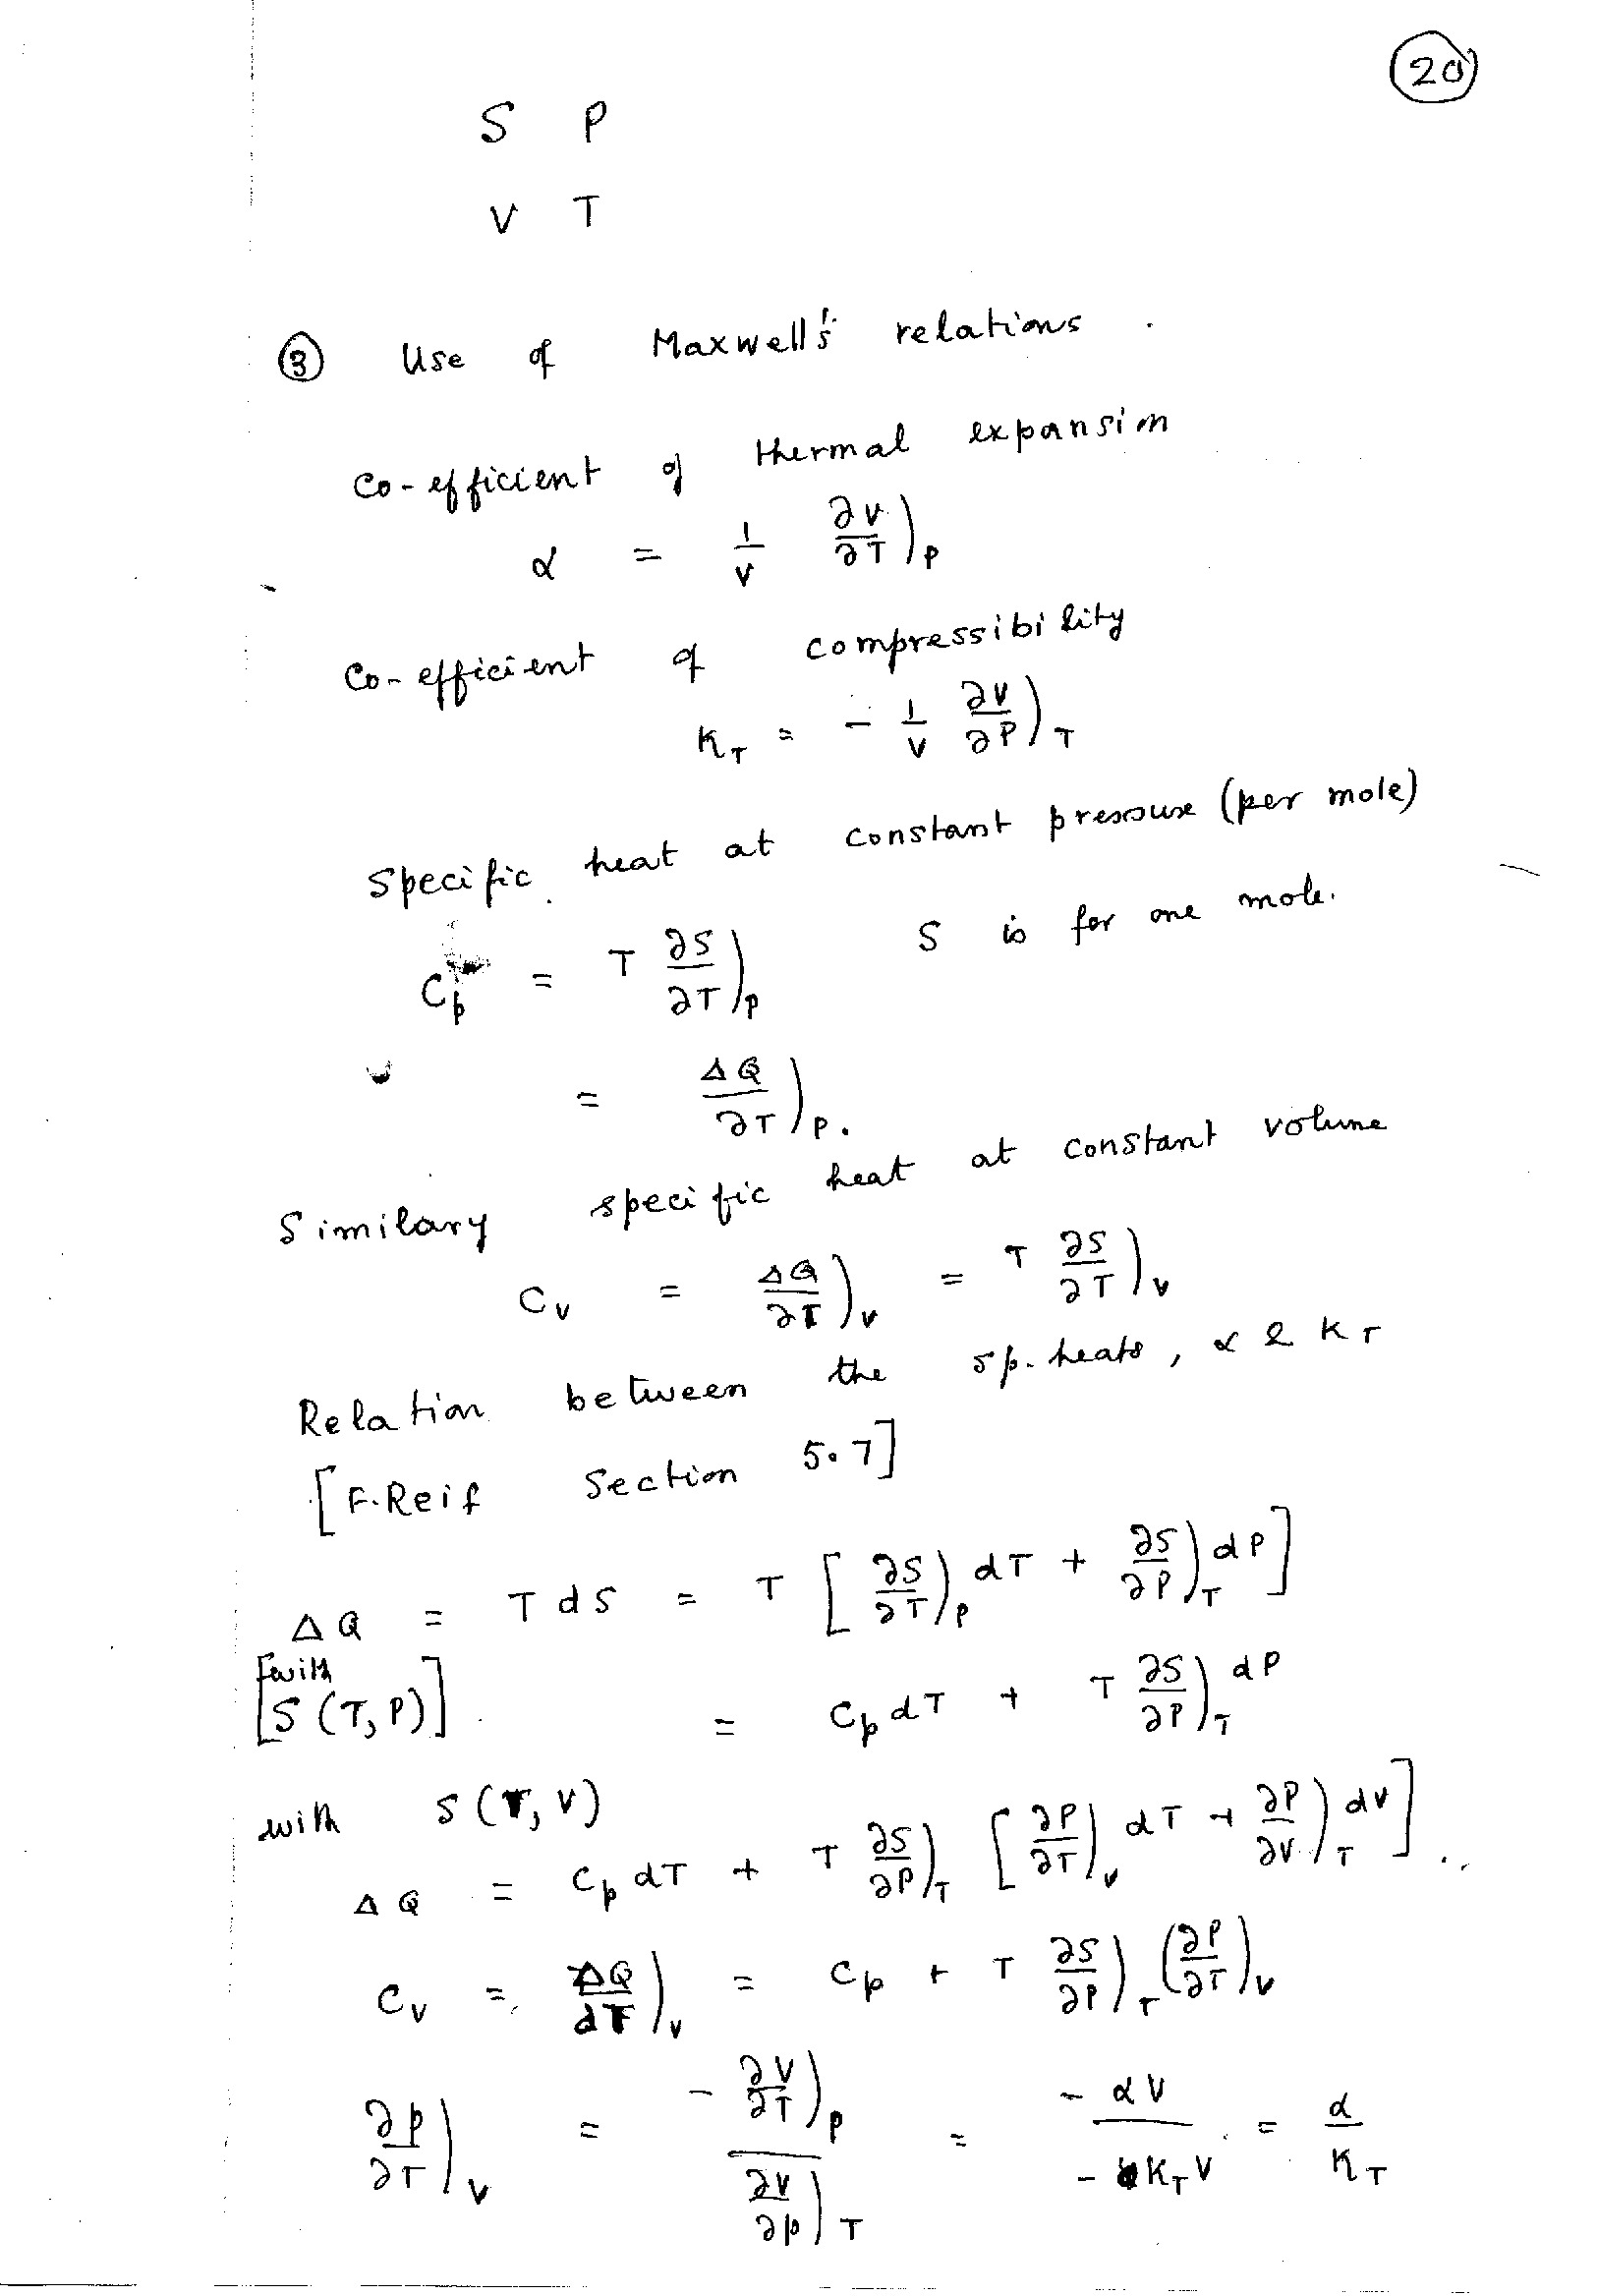 20
S P
V T
③ Use of Maxwell's relations.
Co-efficient of thermal expansion
α = 1/V ∂V/∂T)_P
Co-efficient of compressibility
K_T = - 1/V ∂V/∂P)_T
Specific heat at constant pressure (per mole)
C_p = T ∂S/∂T)_P S is for one mole.
= ΔQ/∂T)_P.
Similary specific heat at constant volume
C_V = ΔQ/∂T)_V = T ∂S/∂T)_V
Relation between the sp. heats, α & K_T
[F. Reif Section 5.7]
ΔQ = T dS = T [∂S/∂T)_P dT + ∂S/∂P)_T dP]
[with S (T, P)] = C_p dT + T ∂S/∂P)_T dP
with S (T, V)
ΔQ = C_p dT + T ∂S/∂P)_T [∂P/∂T)_V dT + ∂P/∂V)_T dV]
C_V = ΔQ/dT)_V = C_p + T ∂S/∂P)_T (∂P/∂T)_V
∂p/∂T)_V = - ∂V/∂T)_P / ∂V/∂p)_T = - αV / - K_T V = α/K_T